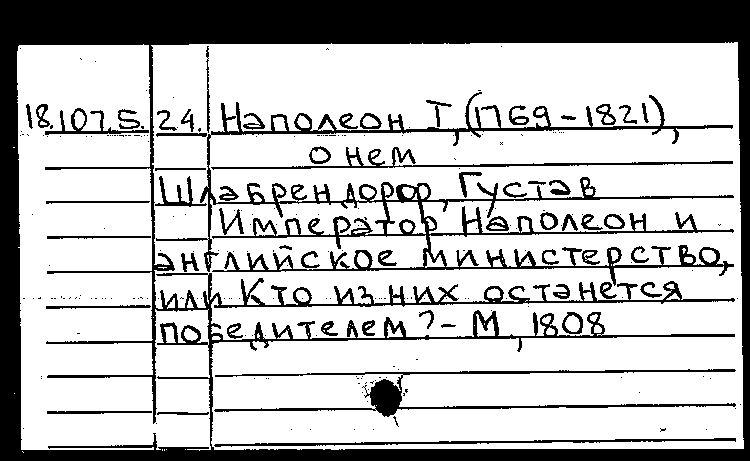 18.107.5. 24. Наполеон I, (1769-1821),
о нем
Шлабрендорор, Густав
Император Наполеон и
английское министерство,
или Кто из них останется
победителем? - М, 1808